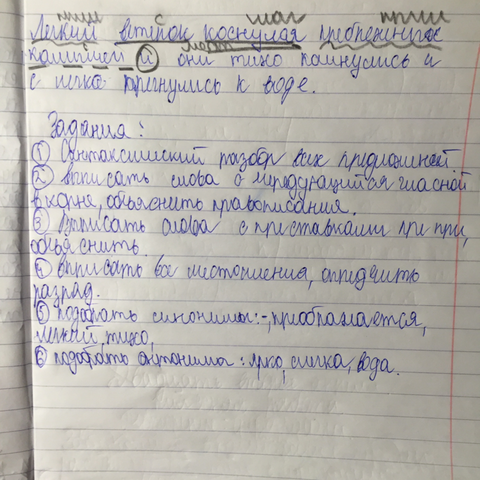 прил с глаг прил
Легкий ветерок коснулся прибрежных
мест
камышей и они тихо качнулись и
слегка пригнулись к воде.
Задания:
① Синтаксический разбор всех предложений
② выписать слова с чередующийся гласной
в корне, объяснить правописания.
③ Выписать слова с приставками при пре,
объяснить.
④ выписать все местоимения, определить
разряд.
⑤ подобрать синонимы:-, преображается,
легкий, тихо,
⑥ подобрать антонимы: ярко, слегка, вода.